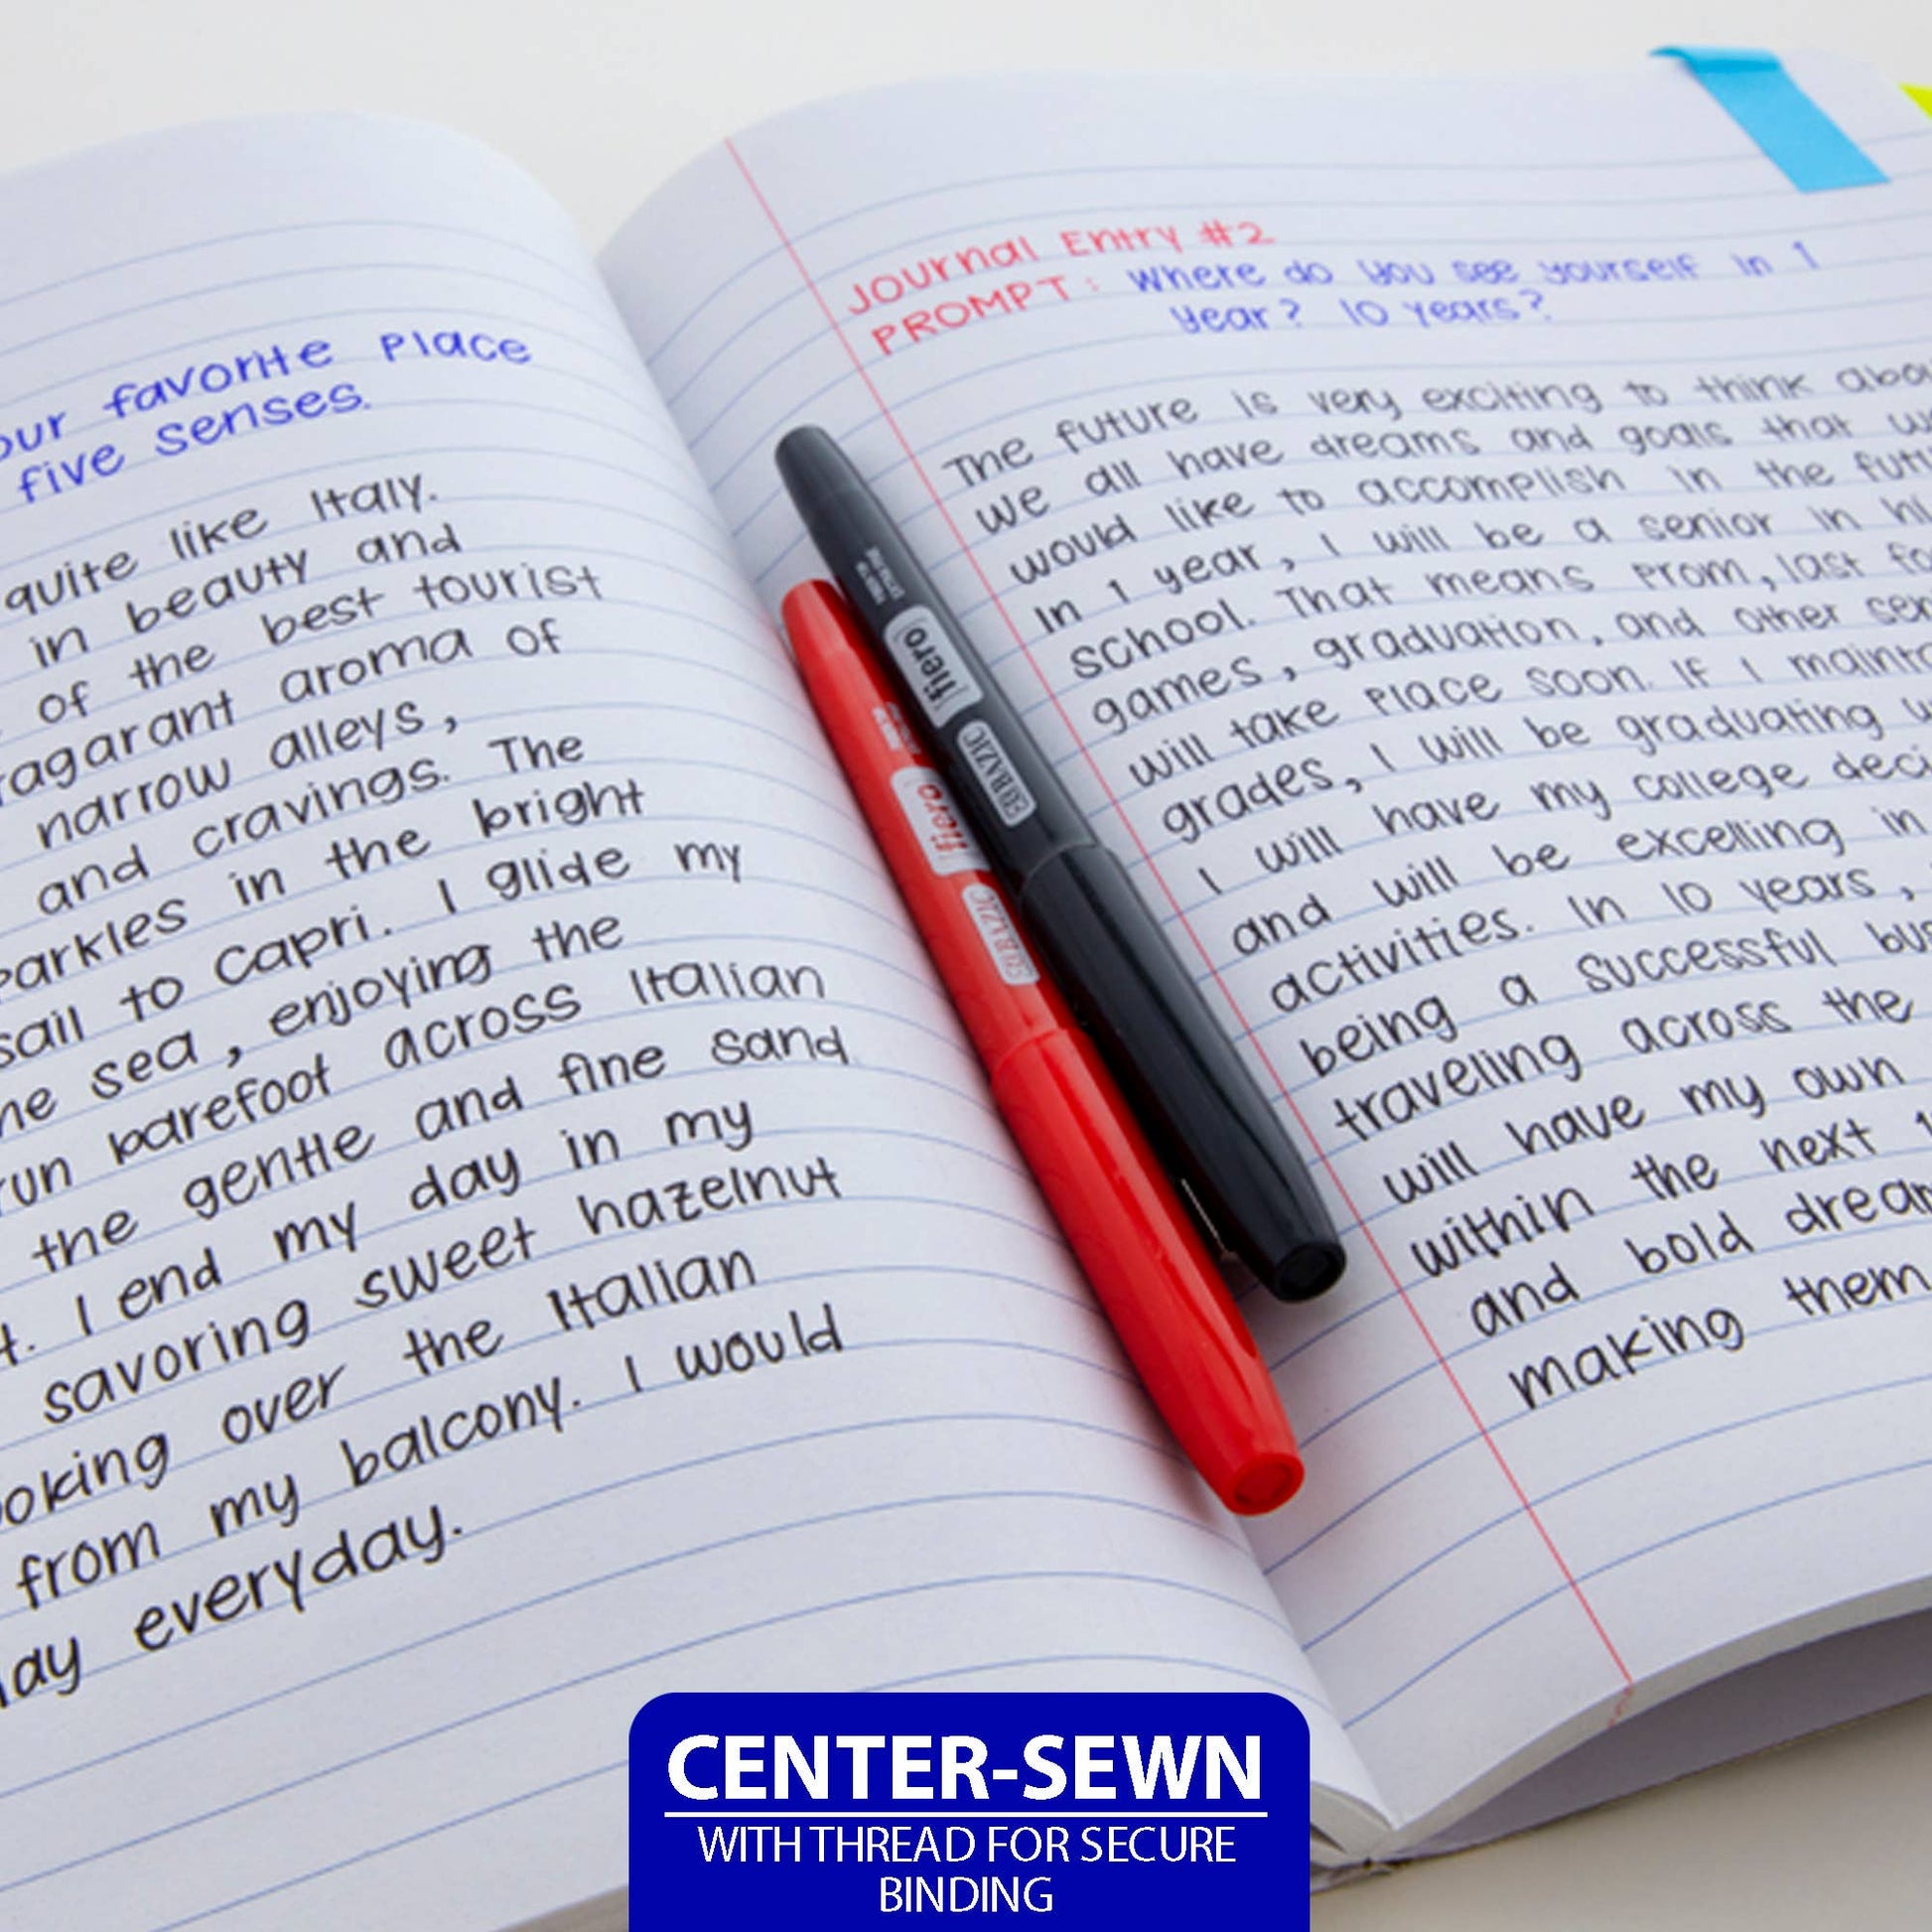 our favorite Place
five senses.
quite like Italy.
in beauty and
of the best tourist
ragarant aroma of
narrow alleys,
and cravings. The
parkles in the bright
sail to Capri. I glide my
he sea, enjoying the
run barefoot across Italian
the gentle and fine sand
t. I end my day in my
savoring sweet hazelnut
ooking over the Italian
from my balcony. I would
lay everyday.
Journal Entry #2
PROMPT: Where do you see yourself in 1
year? 10 years?
The future is very exciting to think abou
We all have dreams and goals that w
would like to accomplish in the futu
In 1 year, I will be a senior in hi
school. That means Prom, last fo
games, graduation, and other sen
will take Place soon. If I mainta
grades, I will be graduating w
I will have my college deci
and will be excelling in
activities. In 10 years,
being a successful bus
traveling across the
will have my own
within the next 1
and bold dream
making them
fiero
BAZIC
fiero
BAZIC
CENTER-SEWN
WITH THREAD FOR SECURE
BINDING